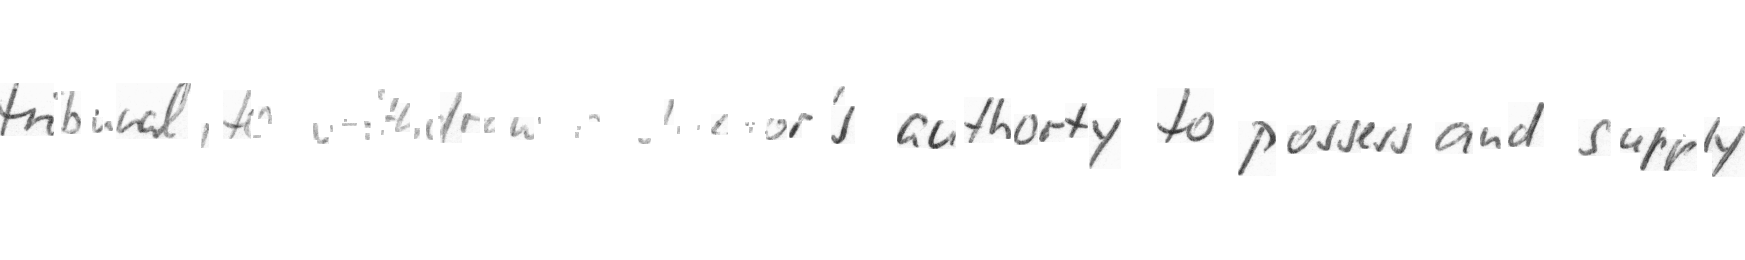 tribunal, to withdraw a doctor's authorty to possess and supply